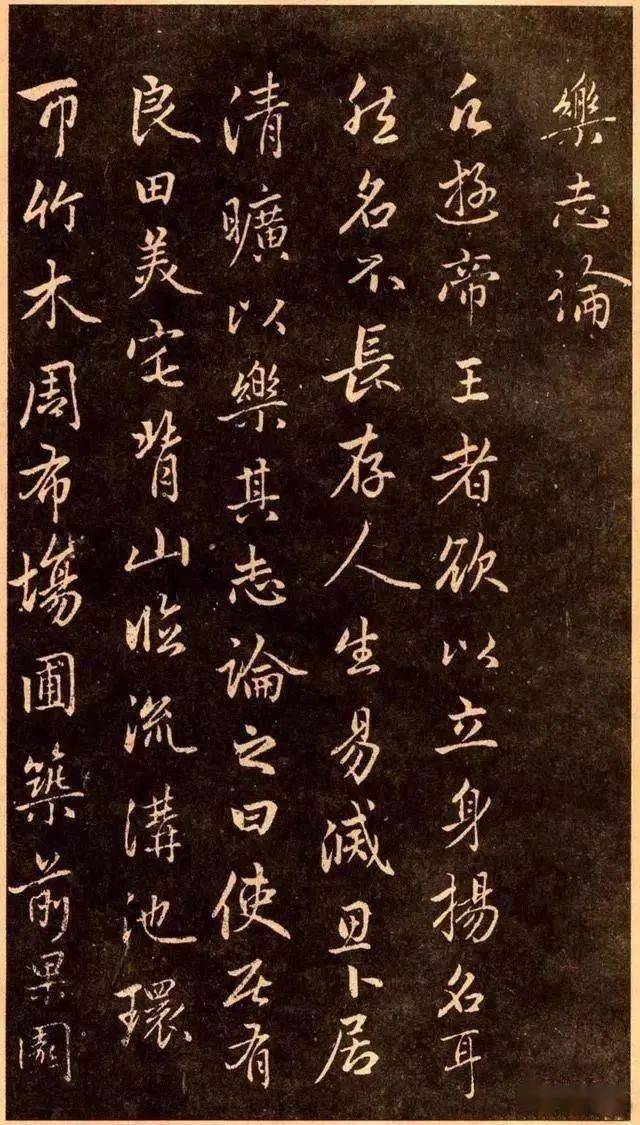 樂志論
凡遊帝王者欲以立身揚名耳
然名不長存人生易滅思卜居
清曠以樂其志論之曰使居有
良田美宅背山臨流溝池環
帀竹木周布場圃築前果園